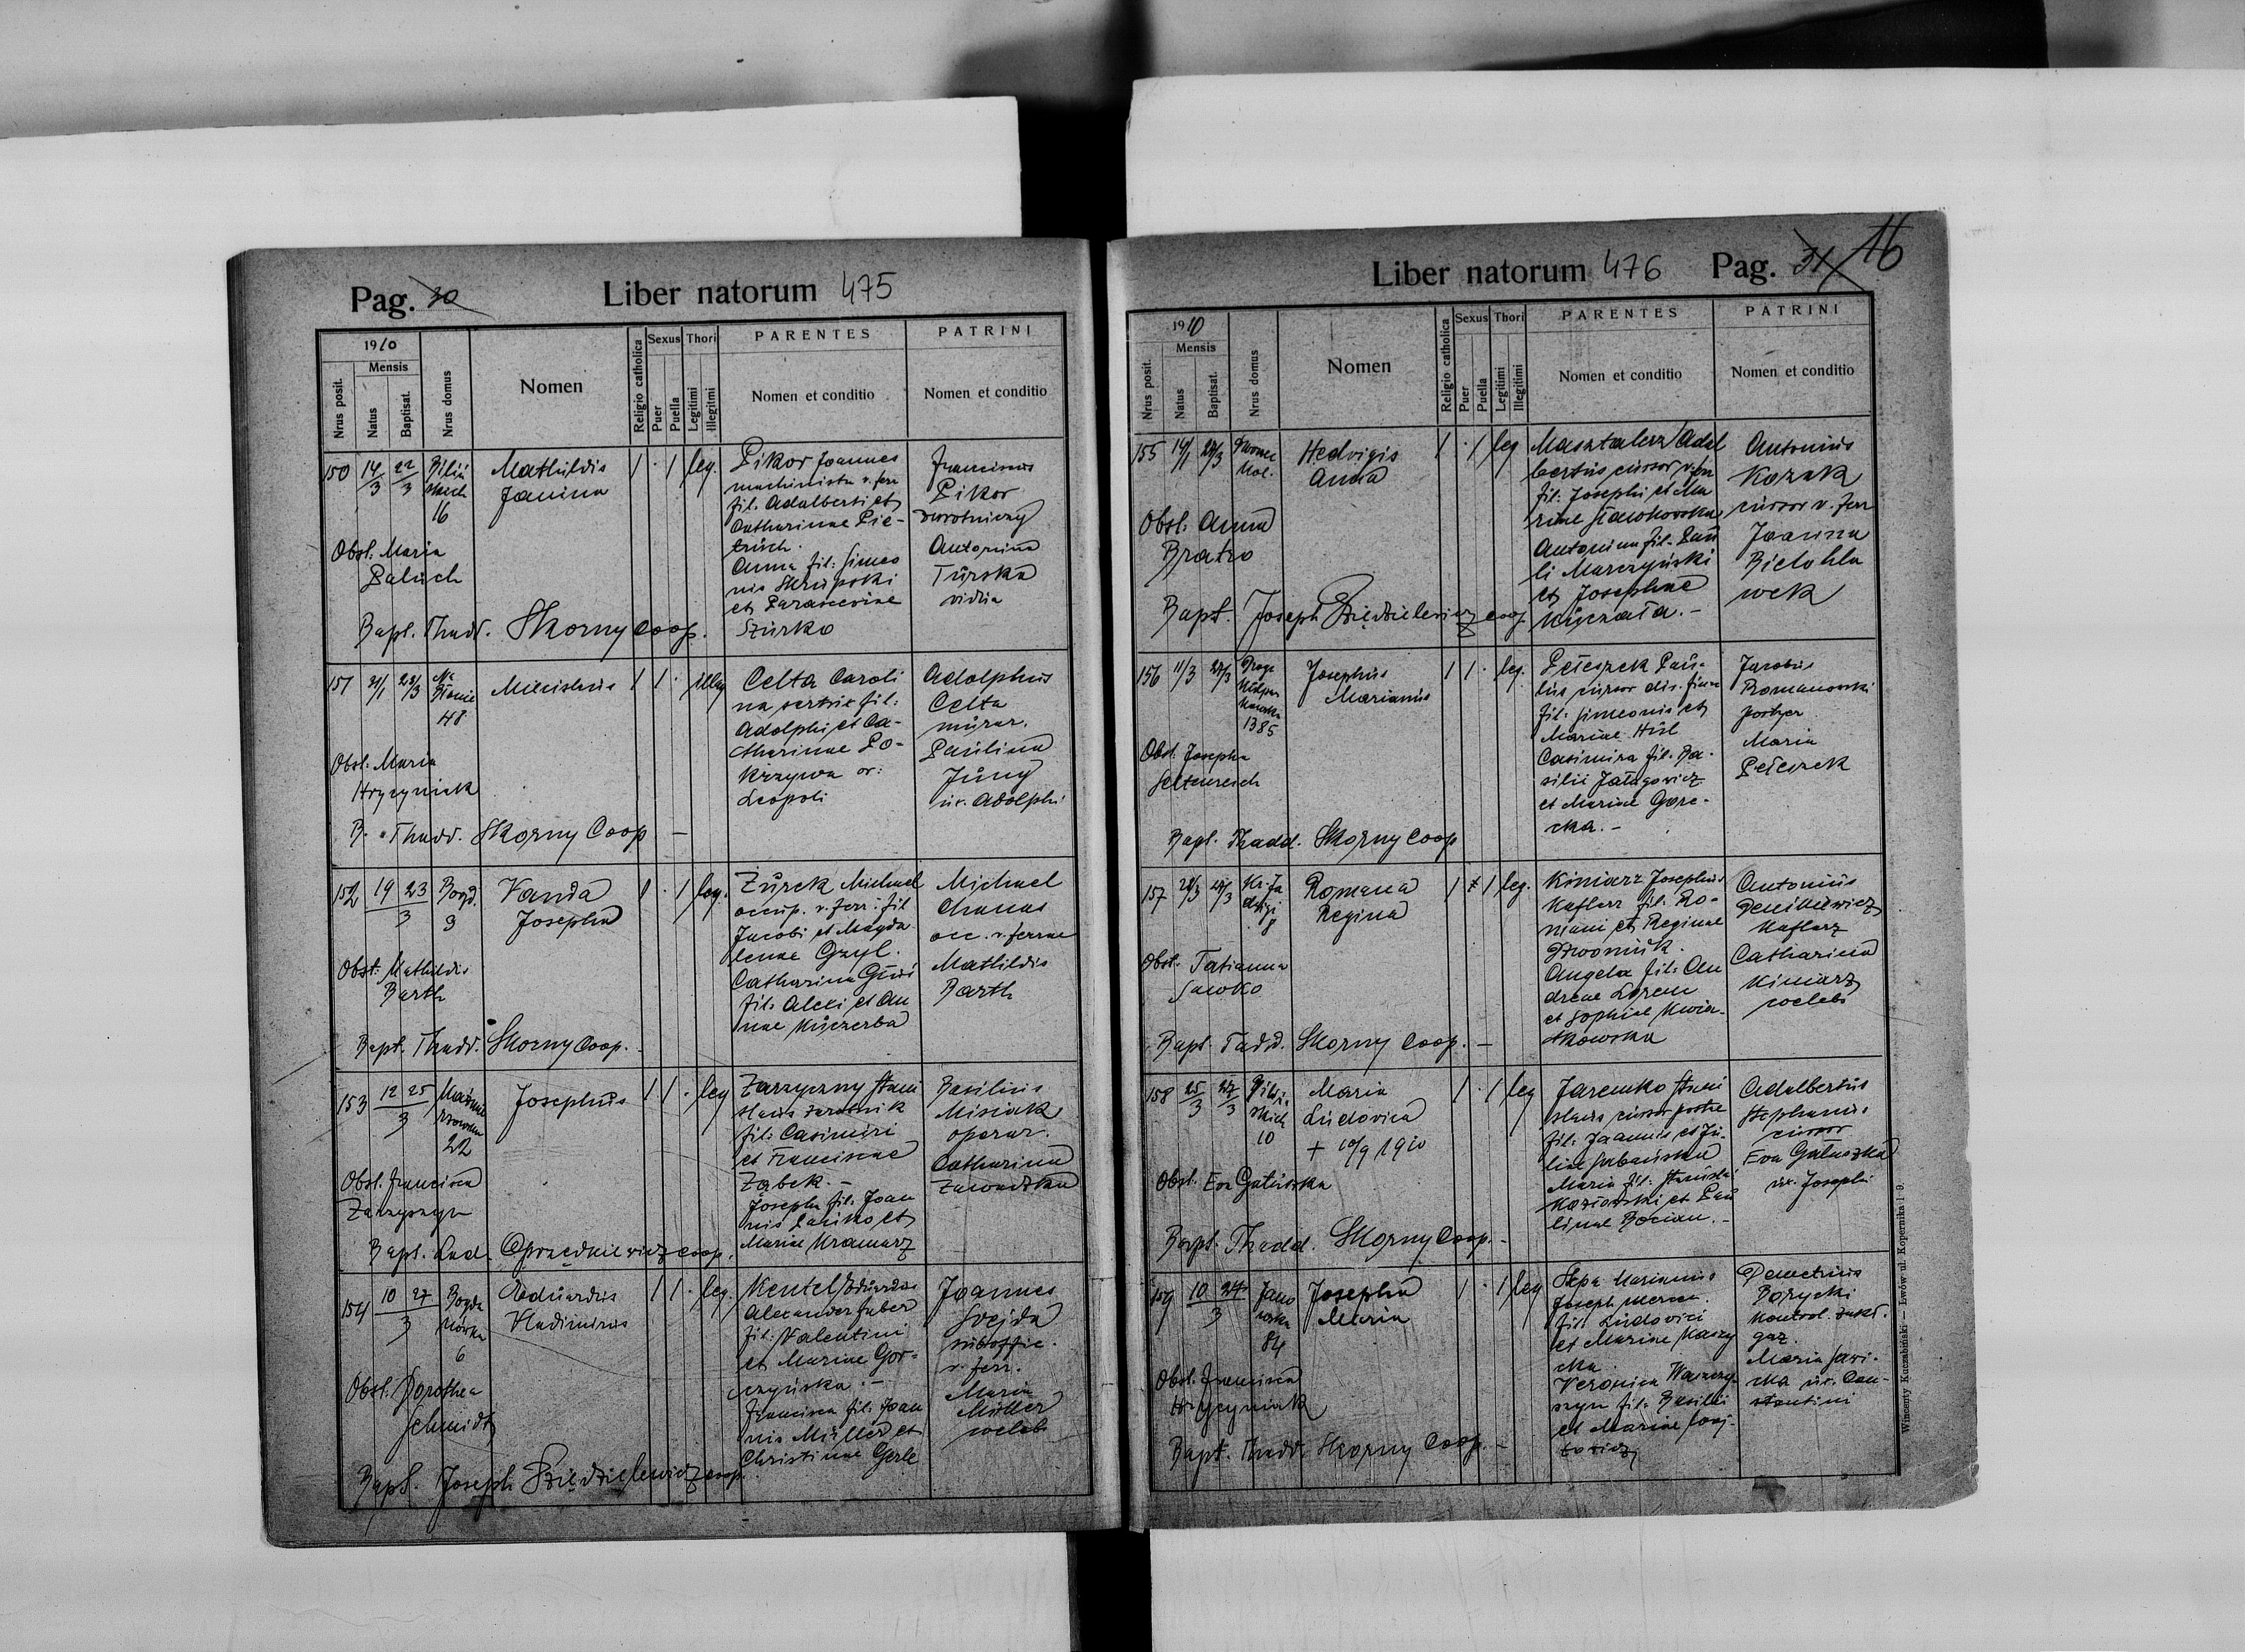 Pag. 30
Liber natorum 475
1910
Mensis
Nrus posit.
Natus
Baptisat.
Nrus domus
Nomen
Religio catholica
Sexus
Puer
Puella
Thori
Legitimi
Illegitmi
PARENTES
Nomen et conditio
PATRINI
Nomen et conditio
150 14/3 22/3
16
Mathildis
Janina
1 . 1 leg.
Pikor Joannes
machinista v. ferr
fil. Adalberti et
Catharinae Pie-
truch.
Anna fil: Simeo
nis Skrupski
et Parascevine
Szurko
Franciscus
Pikor
zwrotniczy
Antonina
Turska
vidua
Obst: Maria
Paluch
Bapt. Thadd. Skorny Coop.
151 21/1 23/3 Na
Błonie
48
1 1 . illeg
Celta Caroli
na sartrix fil:
Adolphi et Ca-
tharinae Po-
krzywa or:
Leopoli
Adolphus
Celta
murar.
Paulina
Jung
ux. Adolphi
Obst: Maria
Hryzyniek
B. Thadd. Skorny Coop —
152 19 23
3
Bogd.
9
Vanda
Josepha
1 . 1 leg.
Żurek Michael
occup. v. ferr: fil
Jacobi et Magda
lenae Gzyl.
Catharina
fil. Alexi et An
nae Kuczerba
Michael
occ. v. ferrae
Mathildis
Barth
Obst: Mathildis
Barth
Bapt. Thadd. Skorny Coop.
153 12 25
3
22
Josephus
1 1 . leg
Zarzyczny Stani
slaus zarobnik
fil. Casimiri
et Franciscae
Ząbek. —
Josepha fil. Joan
nis Panko et
Mariae Kramarz
Basilius
Misiak
operar.
Catharina
Zawadzka
Obst. Francisca
Bapt. Lud. Oprzędkiewicz coop.
154 10 27
3
Bogda
nówka
6
Eduardus
Vladimirus
1 1 . leg.
Kentel Eduardus
Alexander faber
fil: Valentini
et Mariae Gor-
czyńska. —
Francisca fil: Joan
nis Müller et
Christinae Gerle
Joannes
Svejda
suboffic.
v. ferr.
Maria
Müller
coeleb
Obst: Dorothea
Schmidt
Bapt. Joseph Dziędzielewicz coop.
Liber natorum 476 Pag. 31 16
1910
Mensis
Nrus posit.
Natus
Baptisat.
Nrus domus
Nomen
Religio catholica
Sexus
Puer
Puella
Thori
Legitimi
Illegitimi
PARENTES
Nomen et conditio
PATRINI
Nomen et conditio
155
Dworzec
Kol.
Hedvigis
Anna
1 . 1 leg
Masztalerz Adal
bertus cursor v. ferr
fil: Josephi et Ma
riae
Antonina fil. Pau
li Marczyński
et Josephae
Antonius
Kozak
cursor v. ferr
Joanna
Bielohla
wek
Obst: Anna
Bratro
Bapt. Joseph Dziędzielewicz coop.
156 11/3 27/3
1385
Josephus
Marianus
1 1 . leg.
Peleszek Pau-
lus cursor dir. finan
fil: Simeonis et
Mariae Hul
Casimira fil. Ba-
silii
et Mariae Gore-
cka. —
Jacobus
Romanowski
portyer
Maria
Peleszek
Obst. Josepha
Seltenreich
Bapt. Thadd. Skorny Coop
157
Kr. Ja
dwigi
8
Romana
Regina
1 1 leg.
Kiniarz Josephus
Kaflarz fil. Ro-
mani et Reginae
Dzwoniuk.
Angela fil: An
dreae Lorenc
et Sophiae Kwia-
tkowska
Antonius
Kaflarz
Catharina
Kiniarz
coeleb
Obst. Tatianna
Sawko
Bapt. Tadd. Skorny Coop. —
158 25/3 27/3
10
Maria
Ludovica
+ 10/9 1910
1 . 1 leg
Jaremko Stani
slaus cursor postae
fil: Joannis et Ju-
liae
Maria fil: Stanislai
et Pau
linae Bocian. —
Adalbertus
Stephanus
cursor
Eva Gałuszka
ux. Josephi
Obst. Eva
Bapt. Thadd. Skorny Coop. —
159 10 27
3
Jano
wska
84
Josepha
Maria
1 . 1 leg
Marianus
Joseph
fil: Ludovici
et Mariae
cka.
Veronica
fil: Basilii
et Mariae
Demetrius
Borycki
Kontrol. zakł.
gaz.
Maria Sawi-
cka ux. Con-
stantini
Obst. Francisca
Hrycyniak
Bapt. Thadd. Skorny Coop. —
Wincenty Kuczabiński — Lwów ul. Kopernika l 9.